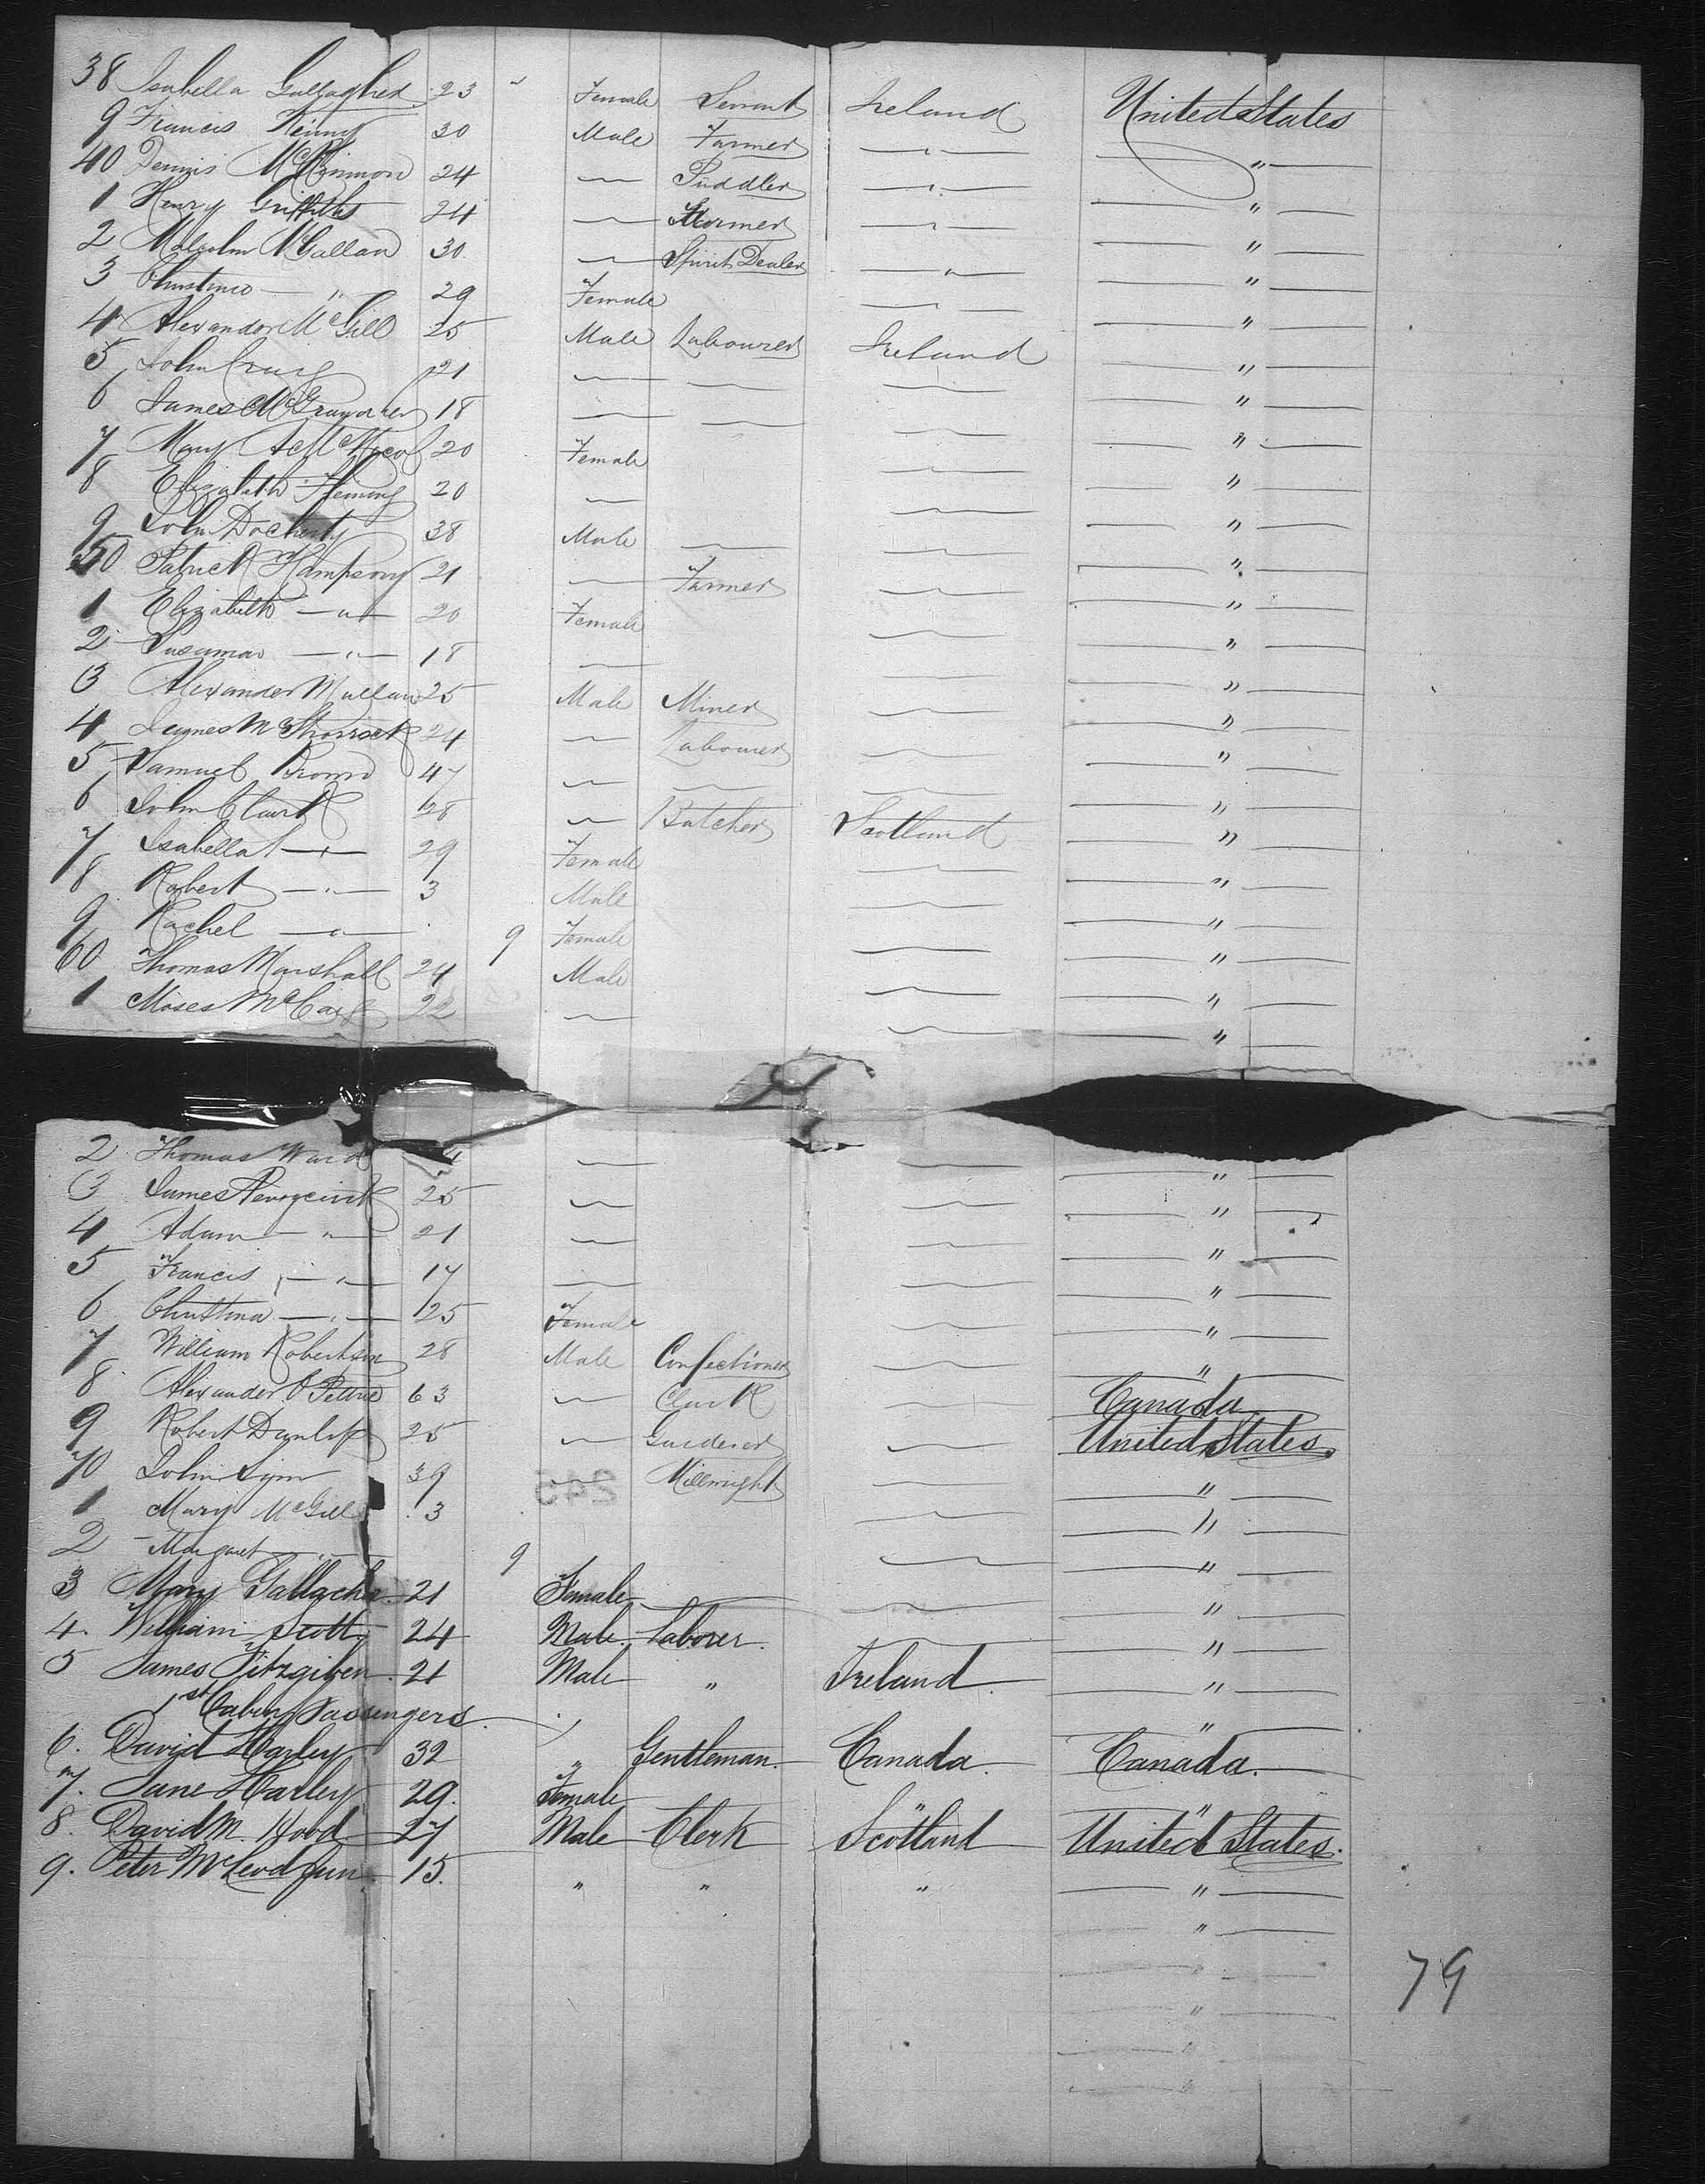 38 Isabella Gallagher 23 " Female Servant Ireland United States
9 Francis Kenny 30 Male Farmer — " — — " —
40 Dennis McKinnon 24 — Puddler — " — — " —
1 Henry Griffiths 24 — Farmer — " — — " —
2 Malcolm McCallan 30 — Spirit Dealer — " — — " —
3 Christina — " 29 Female — — " —
4 Alexander McGill 25 Male Labourer Ireland — " —
5 John Craig 21 — — — — " —
6 James 18 — — — — " —
7 Mary 20 Female — — " —
8 Elizabeth Fleming 20 — — — " —
9 John Docherty 38 Male — — — " —
50 Patrick Hampsony 21 — Farmer — — " —
1 Elizabeth — " — 20 Female — — " —
2 Susanna — " — 18 — — — " —
3 Alexander Mullan 25 Male Miner — — " —
4 James 24 — Labourer — — " —
5 Samuel Brown 47 — — — — " —
6 John Clark 28 — Butcher Scotland — " —
7 Isabella — " — 29 Female — — " —
8 Robert — " — 3 Male — — " —
9 Rachel — " — 9 Female — — " —
60 Thomas Marshall 24 Male — — " —
1 Moses 22 — — — " —
2 Thomas Ward 4 — — — " —
3 James 25 — — — " —
4 Adam — " — 21 — — — " —
5 Francis — " — 17 — — — " —
6 Christina — " — 25 Female — — " —
7 William Robertson 28 Male Confectioner — — " —
8 Alexander Pettrie 63 — Clerk — Canada
9 Robert Dunlop 25 — Gardener — United States
70 John Sym 39 — Millwright — — " —
1 Mary McGill 3 — — " —
2 Margaret — " — 9 — — " —
3 Mary Gallacher 21 Female — — — " —
4. William Scott 24 Male. Laborer. — — " —
5 James Fitzgiben. 21 Male " Ireland. — " —
1st Cabin Passengers. — " —
6. David Harley 32 " Gentleman. Canada. Canada.
7. Jane Harley 29. Female " "
8. David M. Hood 27 Male Clerk Scotland United States.
9. Peter McLeod Jun. 15. " " " — " —
— " —
— " —
— " —
79
245